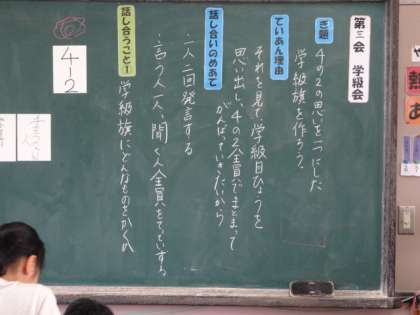 第三会 学級会
ぎ題
4の2の思いを一つにした
学級旗を作ろう。
ていあん理由
それを見て、学級目ひょうを
思い出し、4の2全員でまとまって
がんばっていきたいから
話し合いのめあて
・一人二回発言する
・言う人一人、聞く人全員をてっていする。
話し合うこと1
学級旗にどんなものをかくか
4-2